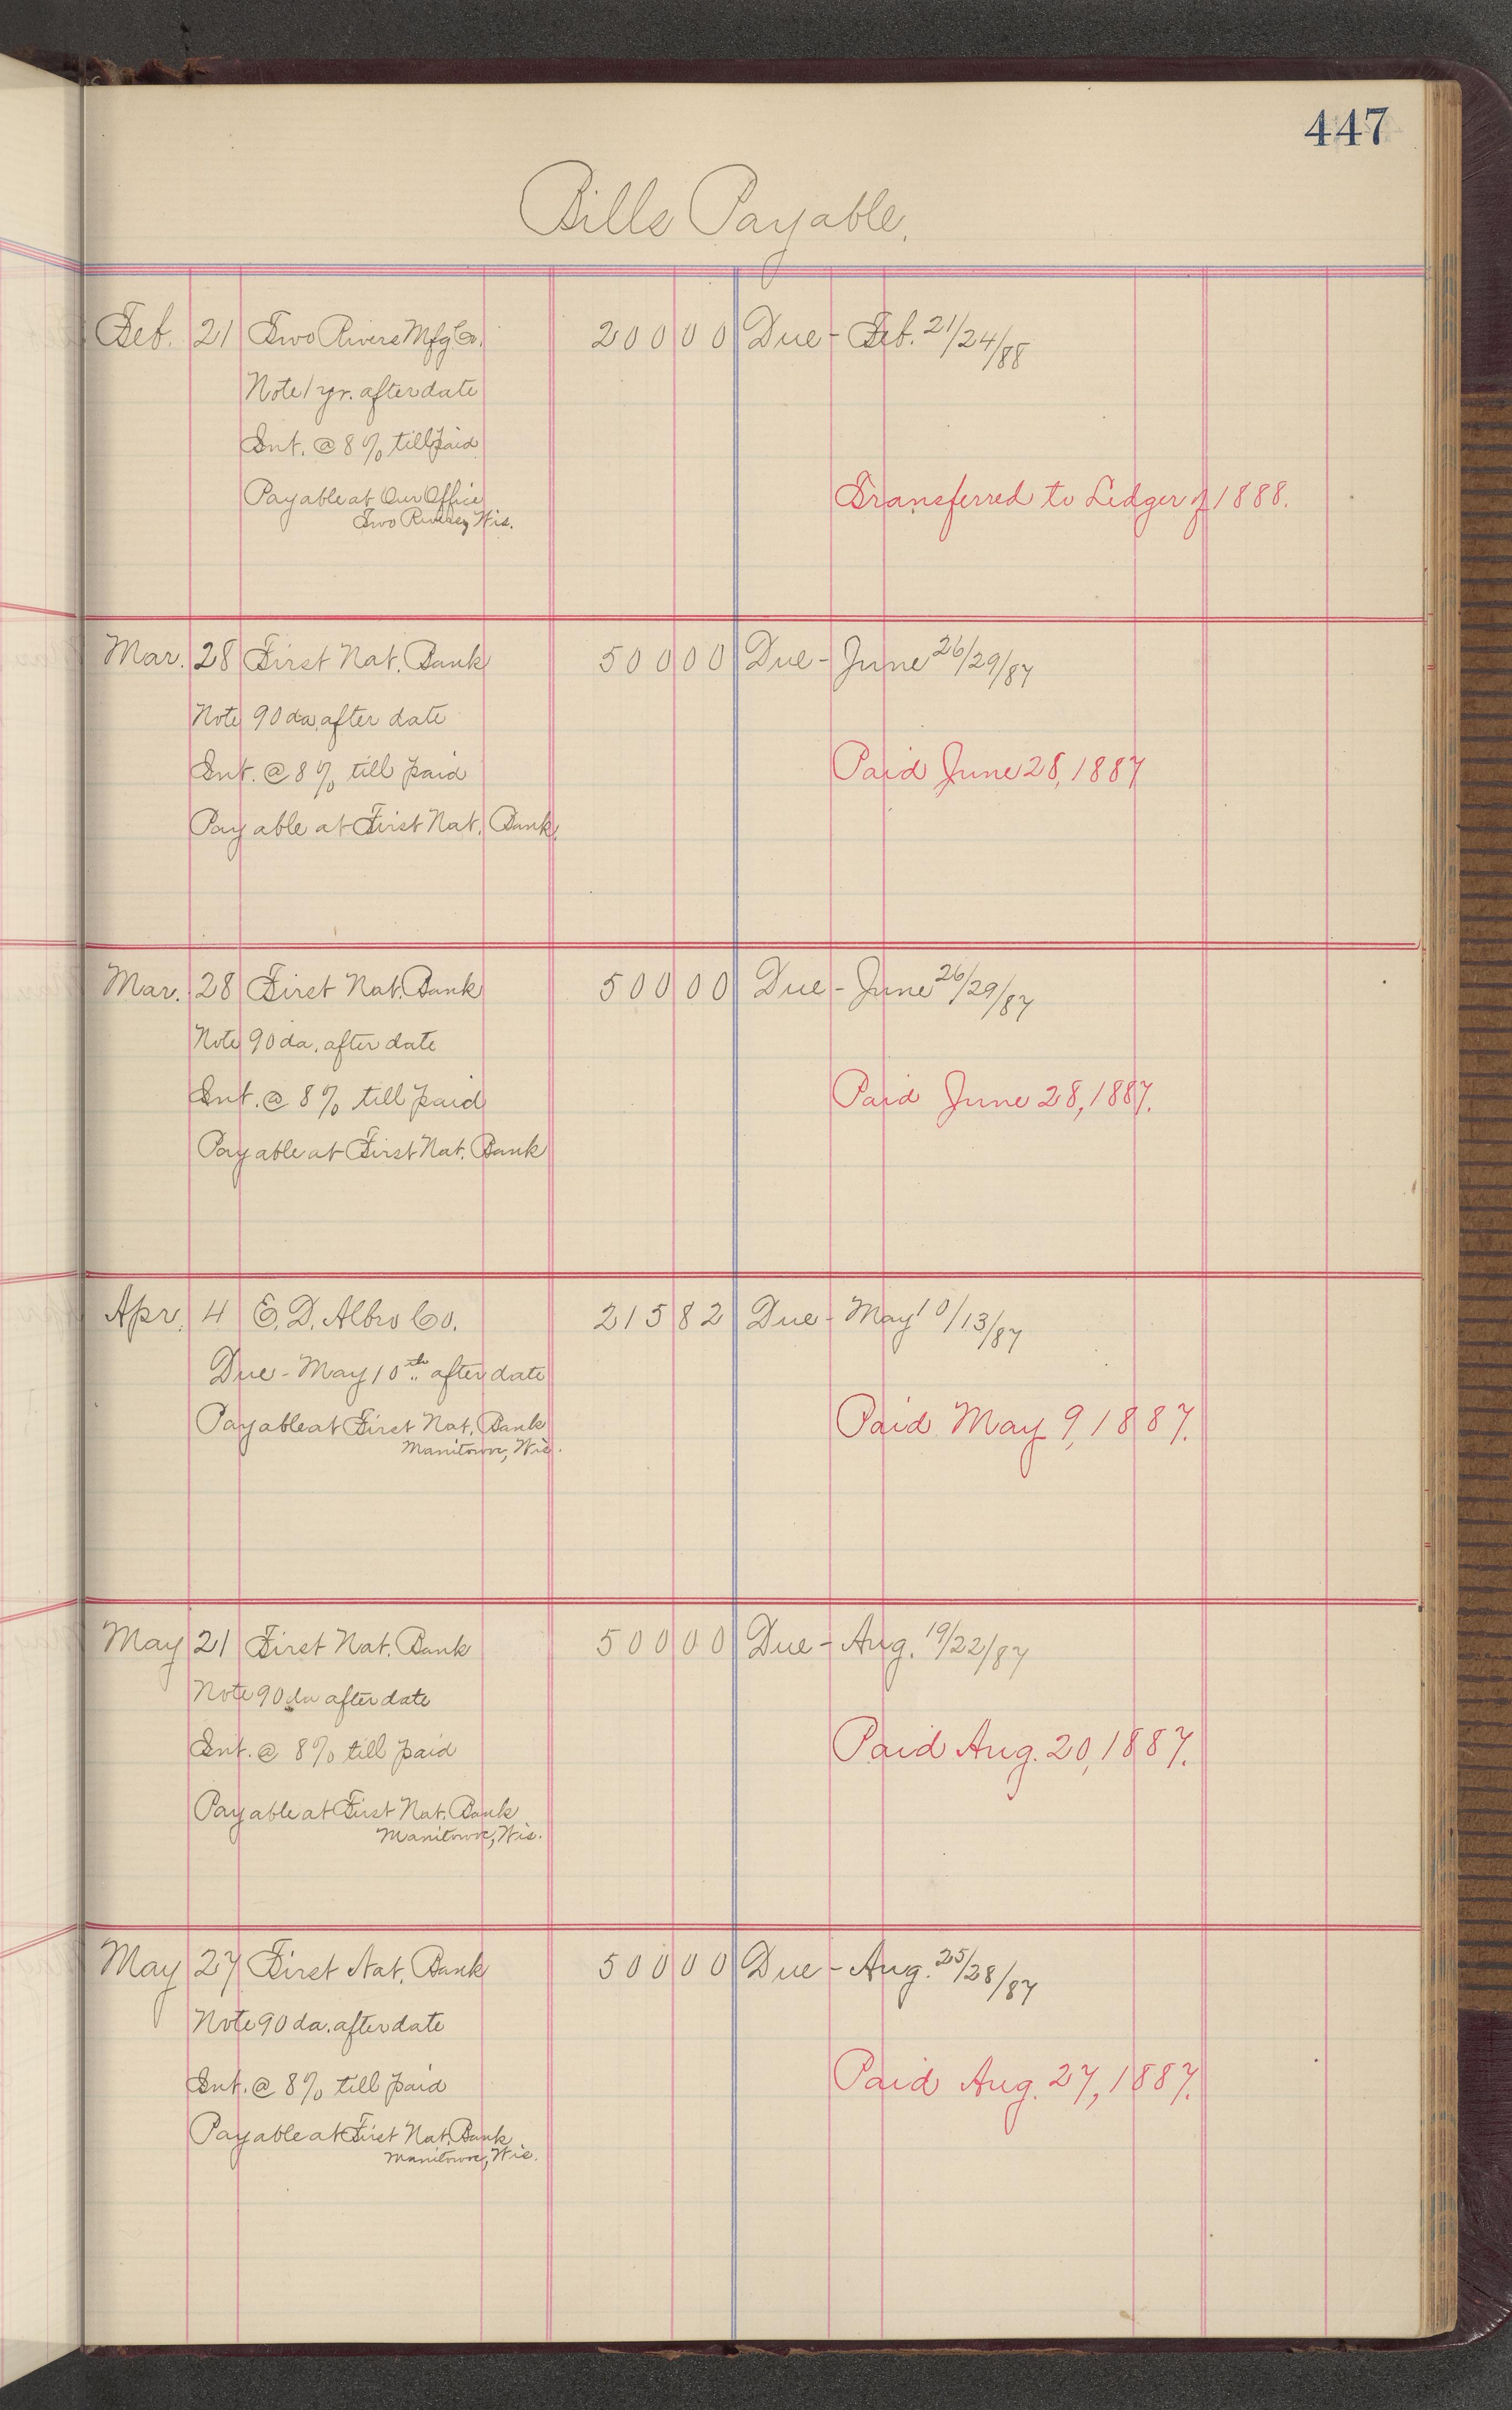 447
Bills Payable.
Feb. 21 Two Rivers Mfg Co. 200 00 Due - Feb. 21/24/88
Note 1 yr. after date
Int. @ 8% till paid
Payable at Our Office
Two Rivers, Wis.
Transferred to Ledger of 1888.
Mar. 28 First Nat. Bank 500 00 Due - June 26/29/87
Note 90 da. after date
Int. @ 8% till paid
Paid June 28, 1887
Payable at First Nat. Bank.
Mar. 28 First Nat. Bank 500 00 Due - June 26/29/87
Note 90 da. after date
Int. @ 8% till paid
Paid June 28, 1887.
Payable at First Nat. Bank
Apr. 4 E. D. Albro Co. 215 82 Due - May 10/13/87
Due - May 10th after date
Payable at First Nat. Bank
Manitowoc, Wis.
Paid May 9, 1887.
May 21 First Nat. Bank 500 00 Due - Aug. 19/22/87
Note 90 da after date
Int. @ 8% till paid
Paid Aug. 20, 1887.
Payable at First Nat. Bank
Manitowoc, Wis.
May 27 First Nat. Bank 500 00 Due - Aug. 25/28/87
Note 90 da. after date
Int. @ 8% till paid
Paid Aug. 27, 1887.
Payable at First Nat. Bank
Manitowoc, Wis.